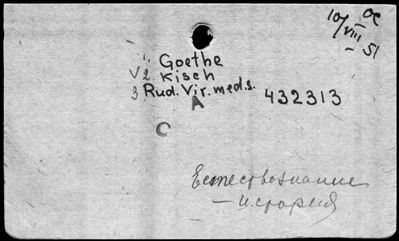 ОС
10/VIII – 51
1. Goethe
V 2. Kisch
3 Rud. Vir. med. s. 432313
A
C
Естествознание
– история